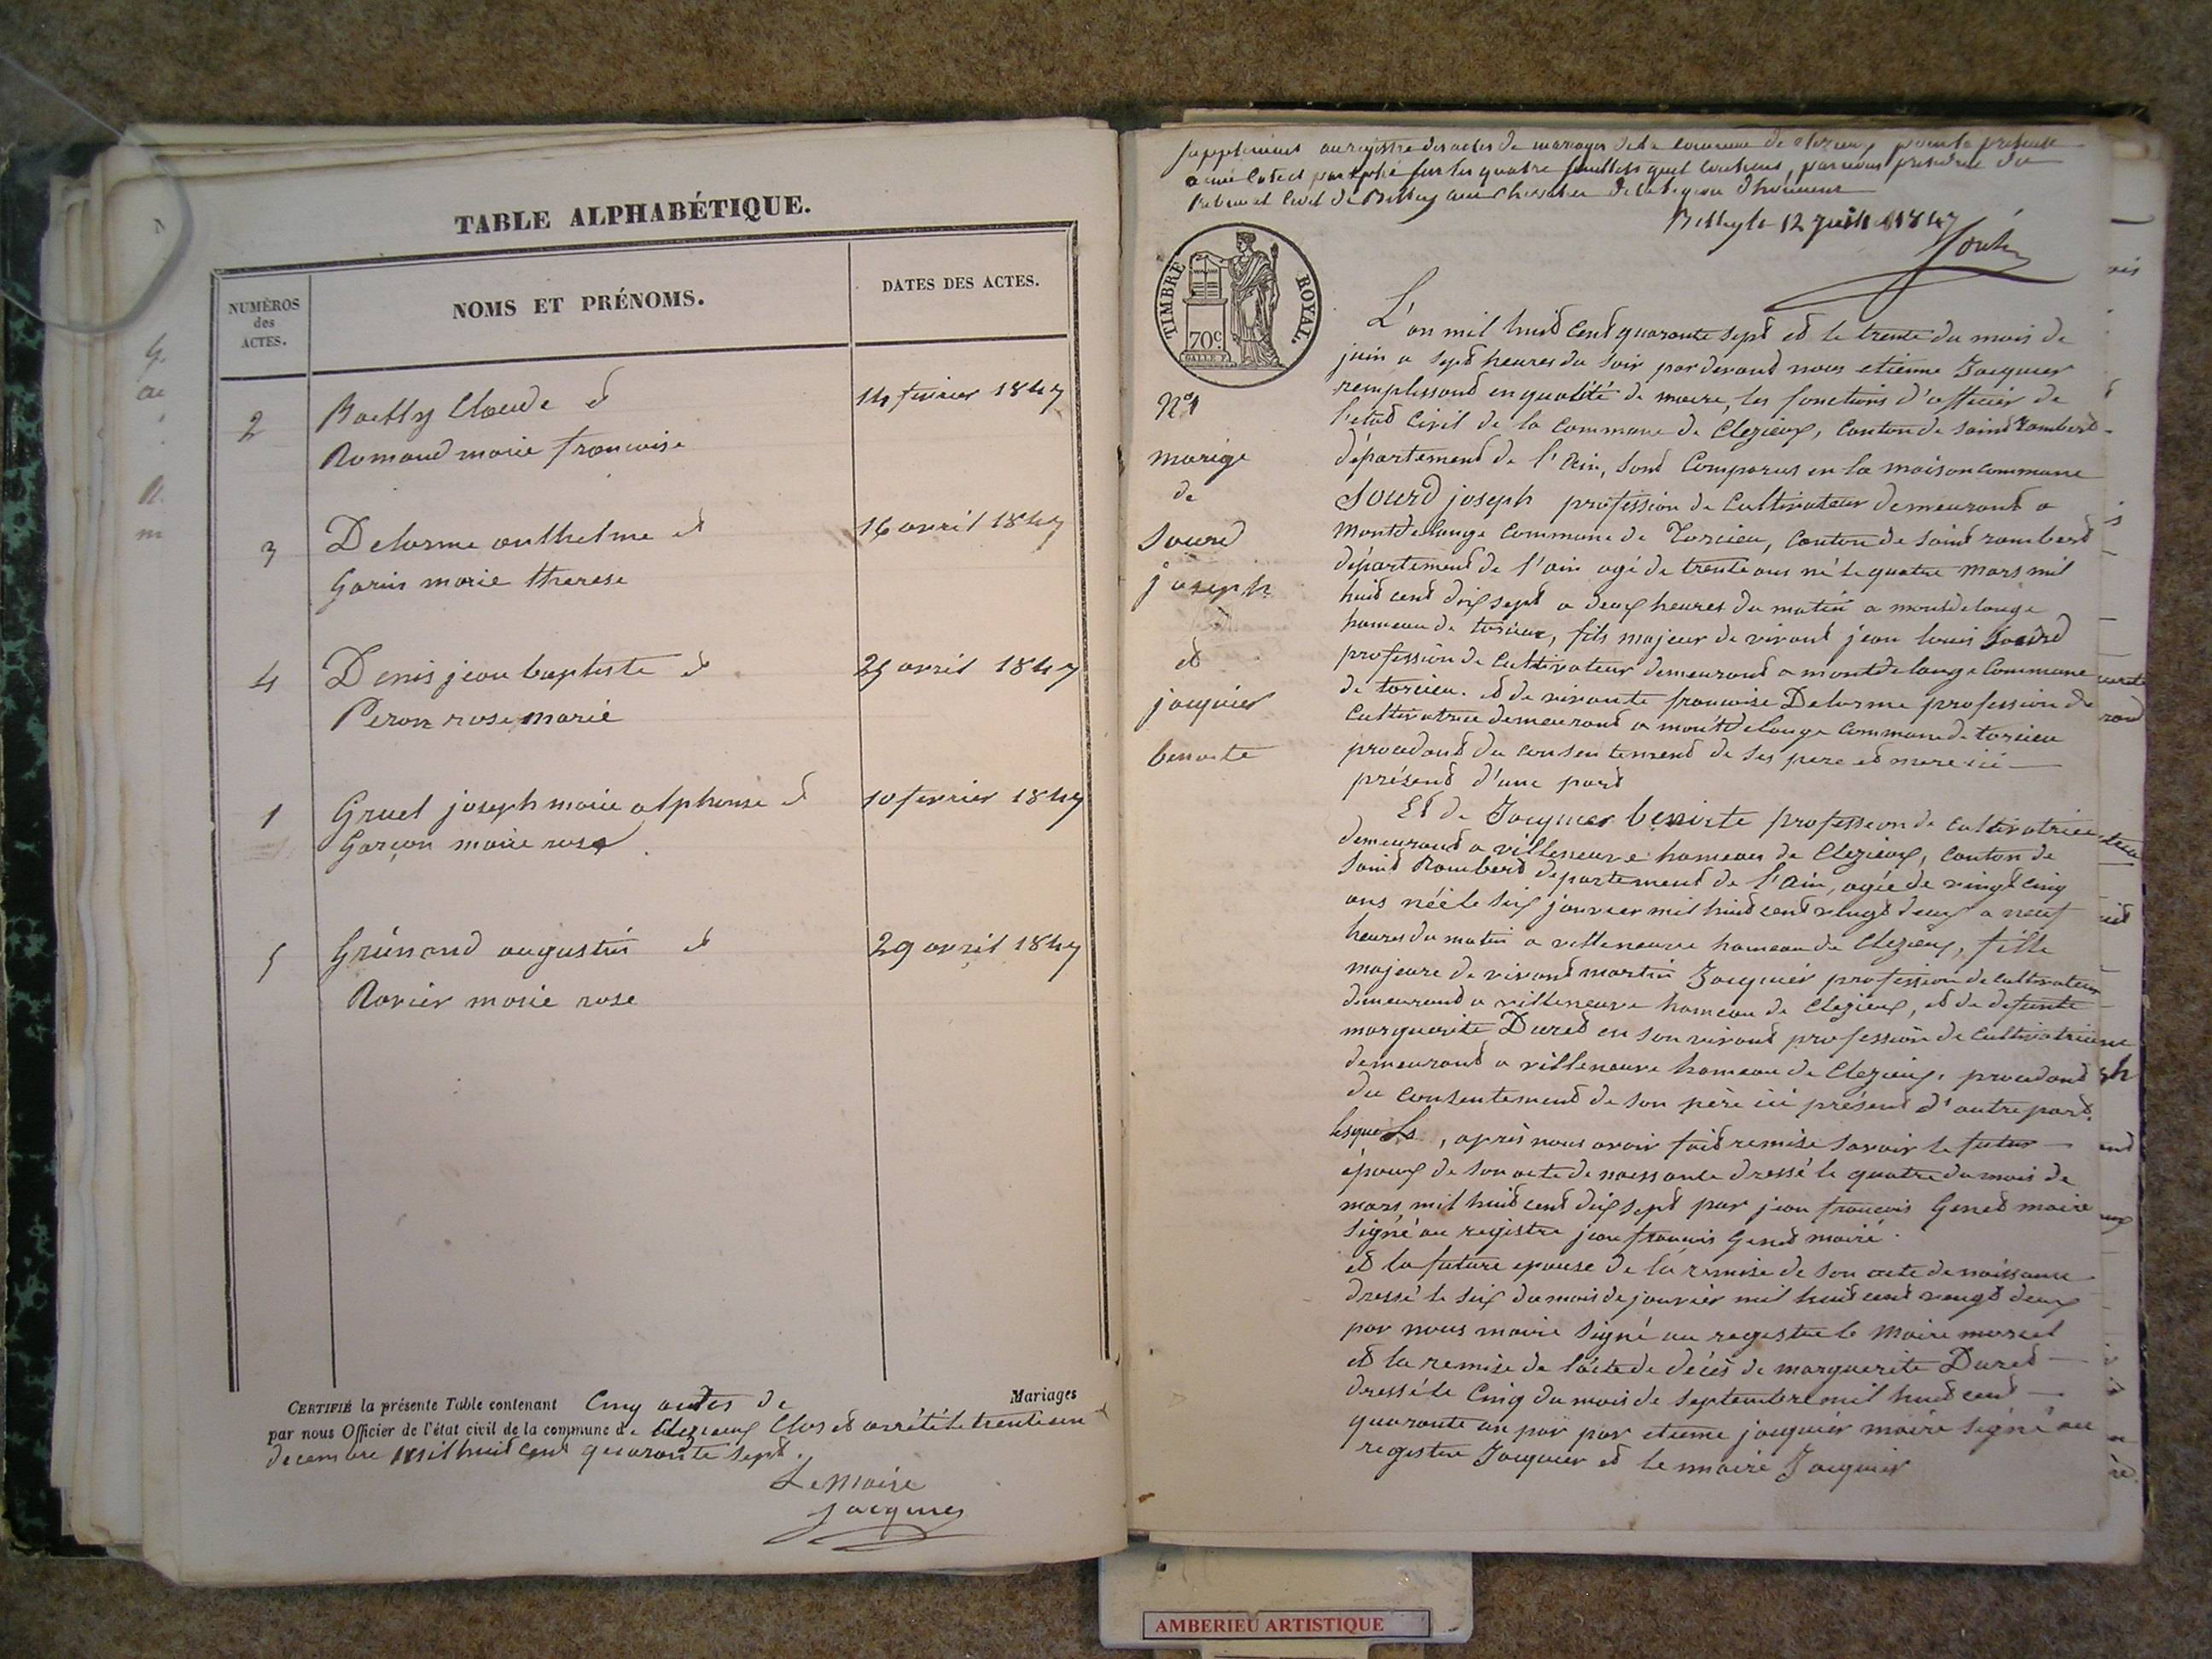 TABLE ALPHABÉTIQUE.
NUMÉROS
des
ACTES.
NOMS ET PRÉNOMS.
DATES DES ACTES.
2 Bailly Claude et 14 fevrier 1847
Romand marie francoise
3 Delorme anthelme et 16 avril 1847
Garin marie therese
4 Denis jean baptiste et 25 avril 1847
Peron rose marie
1 Gruel joseph marie alphonse et 10 fevrier 1847
Garçon marie rose
5 Grünand augustin et 29 avril 1847
Ravier marie rose
CERTIFIÉ la présente Table contenant Cinq actes de Mariages
par nous Officier de l'état civil de la commune de Clezieux Clos et arrêté le trente un
decembre mil huit cent quarante sept.
Le Maire
Jacquier
Supplement au registre des actes de mariages de la commune de Clezieux pour la presente
année Coté et paraphé sur les quatre feuillets quil contient, par nous president du
tribunal Civil de Belley Chevalier de la Legion d'honneur
Belley le 12 juin 1847
TIMBRE ROYAL.
70c
N° 1
marige
de
Sourd
joseph
et
jacquier
benoite
L'an mil huit Cent quarante sept et le trente du mois de
juin a sept heures du soir par devant nous etienne Jacquier
remplissant en qualité de maire, les fonctions d'officier de
l'etat Civil de la Commune de Clezieux, Canton de saint Rambert
département de l'Ain, sont Comparus en la maison commune
Sourd joseph profession de Cultivateur demeurant a
Montdelange Commune de Torcieu, Canton de saint rambert
département de l'ain agé de trente ans né le quatre Mars mil
huit cent dix sept a deux heures du matin a montdelange
hameau de torcieu, fils majeur de vivant jean louis Sourd
profession de Cultivateur demeurant a montdelange Commune
de torcieu. et de vivante francoise Delorme profession de
Cultivatrice demeurant a montdelange Commune de torcieu
procedant du consentement de ses pere et mere ici
présent d'une part
Et de Jacquier benoite profession de Cultivatrice
demeurant a villeneuve hameau de Clezieux, Canton de
Saint Rambert departement de l'Ain, agée de vingt cinq
ans née le six janvier mil huit cent vingt deux a neuf
heures du matin a villeneuve hameau de Clezieux, fille
majeure de vivant martin Jacquier profession de Cultivateur
demeurant a villeneuve hameau de Clezieux, et de defunte
marguerite Duret en son vivant profession de Cultivatrice
demeurant a villeneuve hameau de Clezieux, procedant
du Consentement de son père ici présent d'autre part.
lesquels, après nous avoir fait remise savoir le futur
époux de son acte de naissance dressé le quatre du mois de
mars, mil huit cent dix sept par jean francois Genet maire
signé au registre jean francois Genet maire.
et la future epouse de la remise de son acte de naissance
dressé le six du mois de janvier mil huit cent vingt deux
par nous maire signé au registre le Maire
et la remise de l'acte de décès de marguerite Duret
dressé le Cinq du mois de septembre mil huit cent
quarante un par etienne jacquier maire signé au
registre Jacquier et le maire Jacquier
AMBERIEU ARTISTIQUE